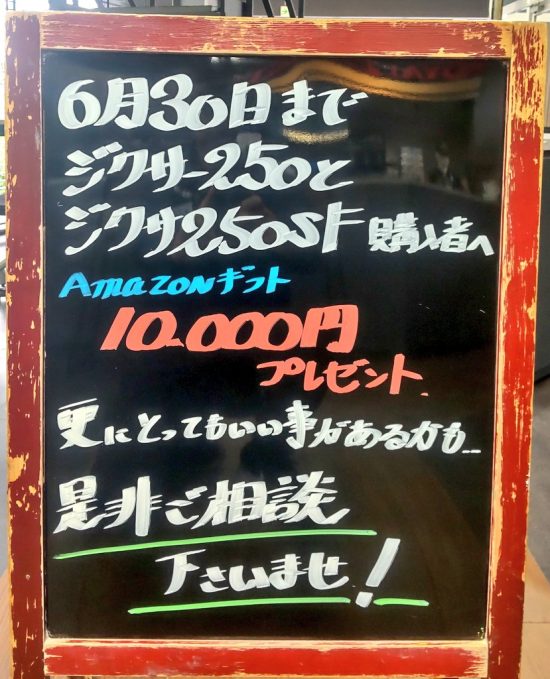 6月30日まで
ジクサー250と
ジクサ250SF購入者へ
Amazonギフト
10.000円
プレゼント.
更にとってもいい事があるかも...
是非ご相談
下さいませ!